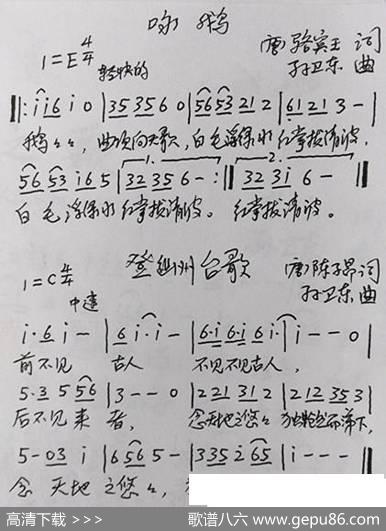 咏 鹅
1=E 4/4 轻快的
唐 骆宾王 词
孙卫东 曲
‖: i i 6 i 0 | 35 35 6 0 | 56 53 21 2 | 61 21 3 - |
鹅々々, 曲项向天歌, 白毛浮绿水 红掌拨清波,
1. 2.
56 53 i6 5 | 32 35 6 - :‖ 32 3i 6 - ‖
白毛浮绿水 红掌拨清波。 红掌拨清波。
登幽州台歌
1=C 4/4 中速
唐 陈子昂 词
孙卫东 曲
i·6 i - | 6 i·i - | 6·i 6·i 6 i· | i - - 0 |
前不见 古人 不见不见古人,
5·3 5 56 | 3 - - 0 | 221 31 2 | 212 35 3 |
后不见来者, 念天地之悠々 独怆然而涕下,
5 - 03 i | 6 56 5 - | 335 2 65 | i - - - ‖
念 天地 之悠々,
高清下载 >>>
歌谱八六 www.gepu86.com